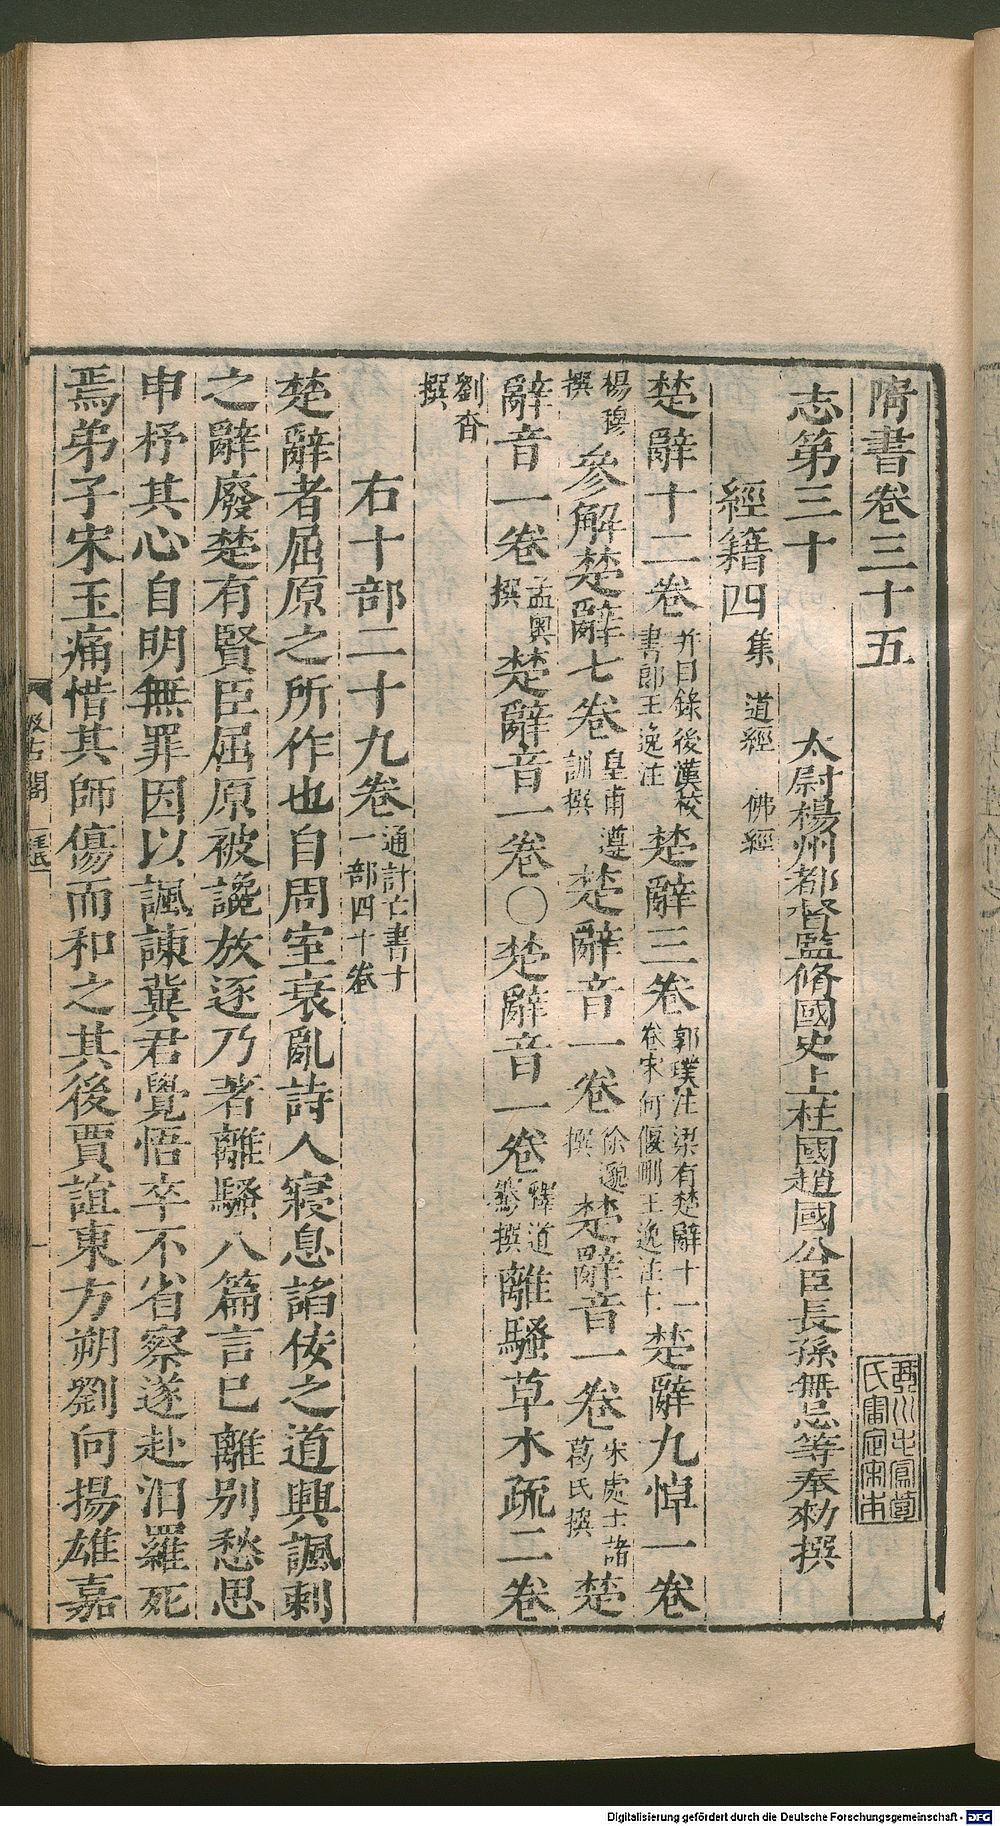 隋書卷三十五
琴川毛鳳苞氏審定宋本
志第三十　太尉楊州都督監脩國史上柱國趙國公臣長孫無忌等奉勑撰
經籍四　集　道經　佛經
楚辭十二卷并目錄後漢校書郎王逸注楚辭三卷郭璞注梁有楚辭十一卷宋何偃刪王逸注亡楚辭九悼一卷
楊穆撰參解楚辭七卷皇甫遵訓撰楚辭音一卷徐邈撰楚辭音一卷宋處士諸葛氏撰楚
辭音一卷孟奧撰楚辭音一卷〇楚辭音一卷釋道騫撰離騷草木疏二卷
劉杳撰
右十部二十九卷通計亡書十一部四十卷
楚辭者屈原之所作也自周室衰亂詩人寢息諂佞之道興諷刺
之辭廢楚有賢臣屈原被讒放逐乃著離騷八篇言已離別愁思
申杼其心自明無罪因以諷諫冀君覺悟卒不省察遂赴汨羅死
焉弟子宋玉痛惜其師傷而和之其後賈誼東方朔劉向揚雄嘉
汲古閣
Digitalisierung gefördert durch die Deutsche Forschungsgemeinschaft - DFG